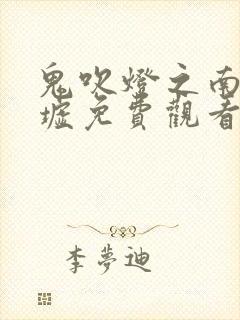 鬼吹燈之南
墟免費觀看
李夢迪